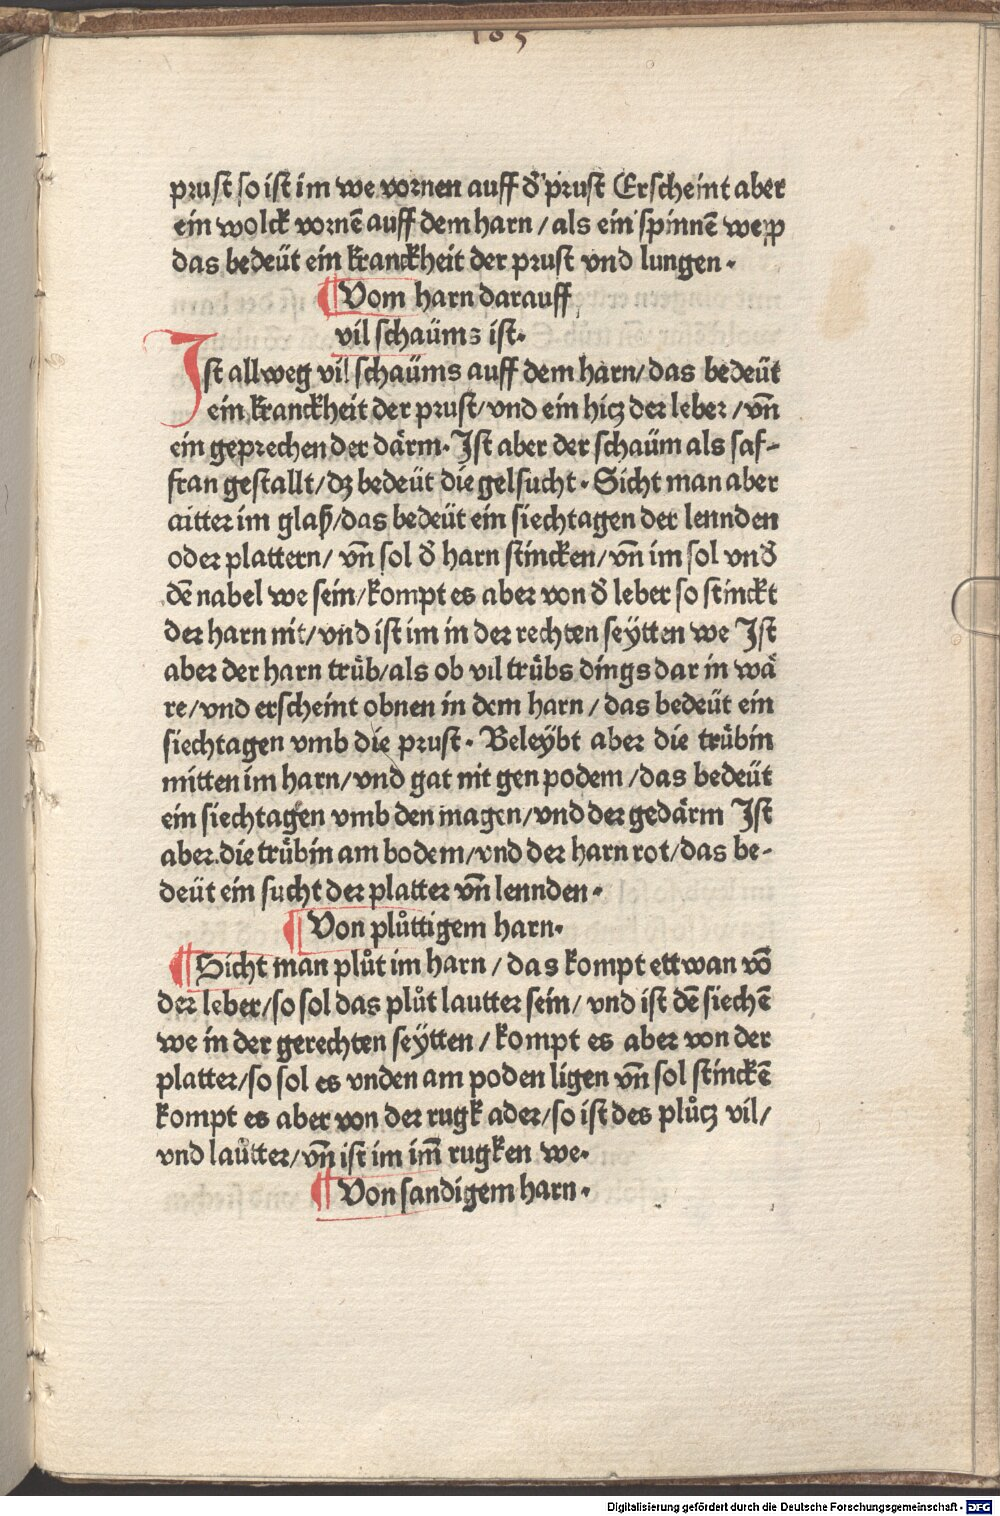 185
prust so ist im we vornen auff d̕ prust Erscheint aber
ein wolck vornē auff dem harn / als ein spinnē wepp
das bedeüt ein kranckheit der prust vnd lungen.
¶ Vom harn darauff
vil schaüms ist.
Ist allweg vil schaüms auff dem harn/das bedeüt
ein kranckheit der prust/vnd ein hicz der leber /vn̄
ein geprechen der därm. Ist aber der schaüm als saf-
fran gestallt/dz bedeüt die gelsucht. Sicht man aber
aitter im glaß/das bedeüt ein siechtagen der lennden
oder plattern/ vn̄ sol d̕ harn stincken/vn̄ im sol vnd̕
dē nabel we sein/kompt es aber von d̕ leber so stinckt
der harn nit/vnd ist im in der rechten seÿtten we Ist
aber der harn trüb/als ob vil trübs dings dar in wä
re/vnd erscheint obnen in dem harn / das bedeüt ein
siechtagen vmb die prust. Beleÿbt aber die trübin
mitten im harn/vnd gat nit gen podem /das bedeüt
ein siechtagen vmb den magen/vnd der gedärm Ist
aber die trübin am bodem/vnd der harn rot/das be-
deüt ein sucht der platter vn̄ lennden.
¶ Von plůttigem harn.
¶ Sicht man plůt im harn / das kompt ettwan vō
der leber/so sol das plůt lautter sein/ vnd ist dē siechē
we in der gerechten seÿtten / kompt es aber von der
platter/so sol es vnden am poden ligen vn̄ sol stinckē
kompt es aber von der rugk ader/so ist des plůcz vil/
vnd laůtter/vn̄ ist im im̄ rugken we.
¶ Von sandigem harn.
Digitalisierung gefördert durch die Deutsche Forschungsgemeinschaft - DFG